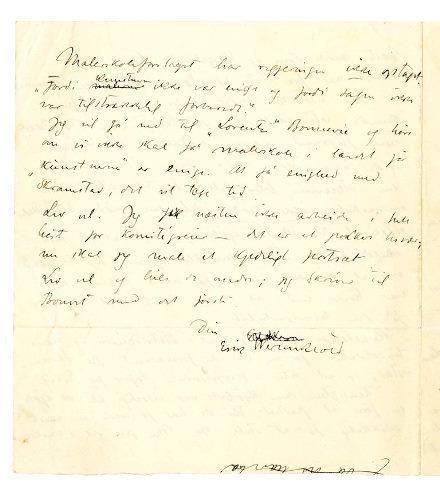 Maleskoleforslaget har regjeringen ikke optaget
"Fordi kunstnerne ikke var enige og fordi sagen ikke
var tilstrækkelig forberedt."
Jeg vil gå ned til "Lorentz" og høre
om vi ikke skal få maleskole i landet før
"Kunstnerne" er enige. At få enighed med
Skramstad, det vil tage tid
Lev vel. Jeg får næsten ikke arbeide i hele
høst for komitégreier – det er et
nu skal jeg male et kjedeligt portræt
Lev vel og hils de andre; jeg skriver til
med det første
Din
Erik Werenskiold